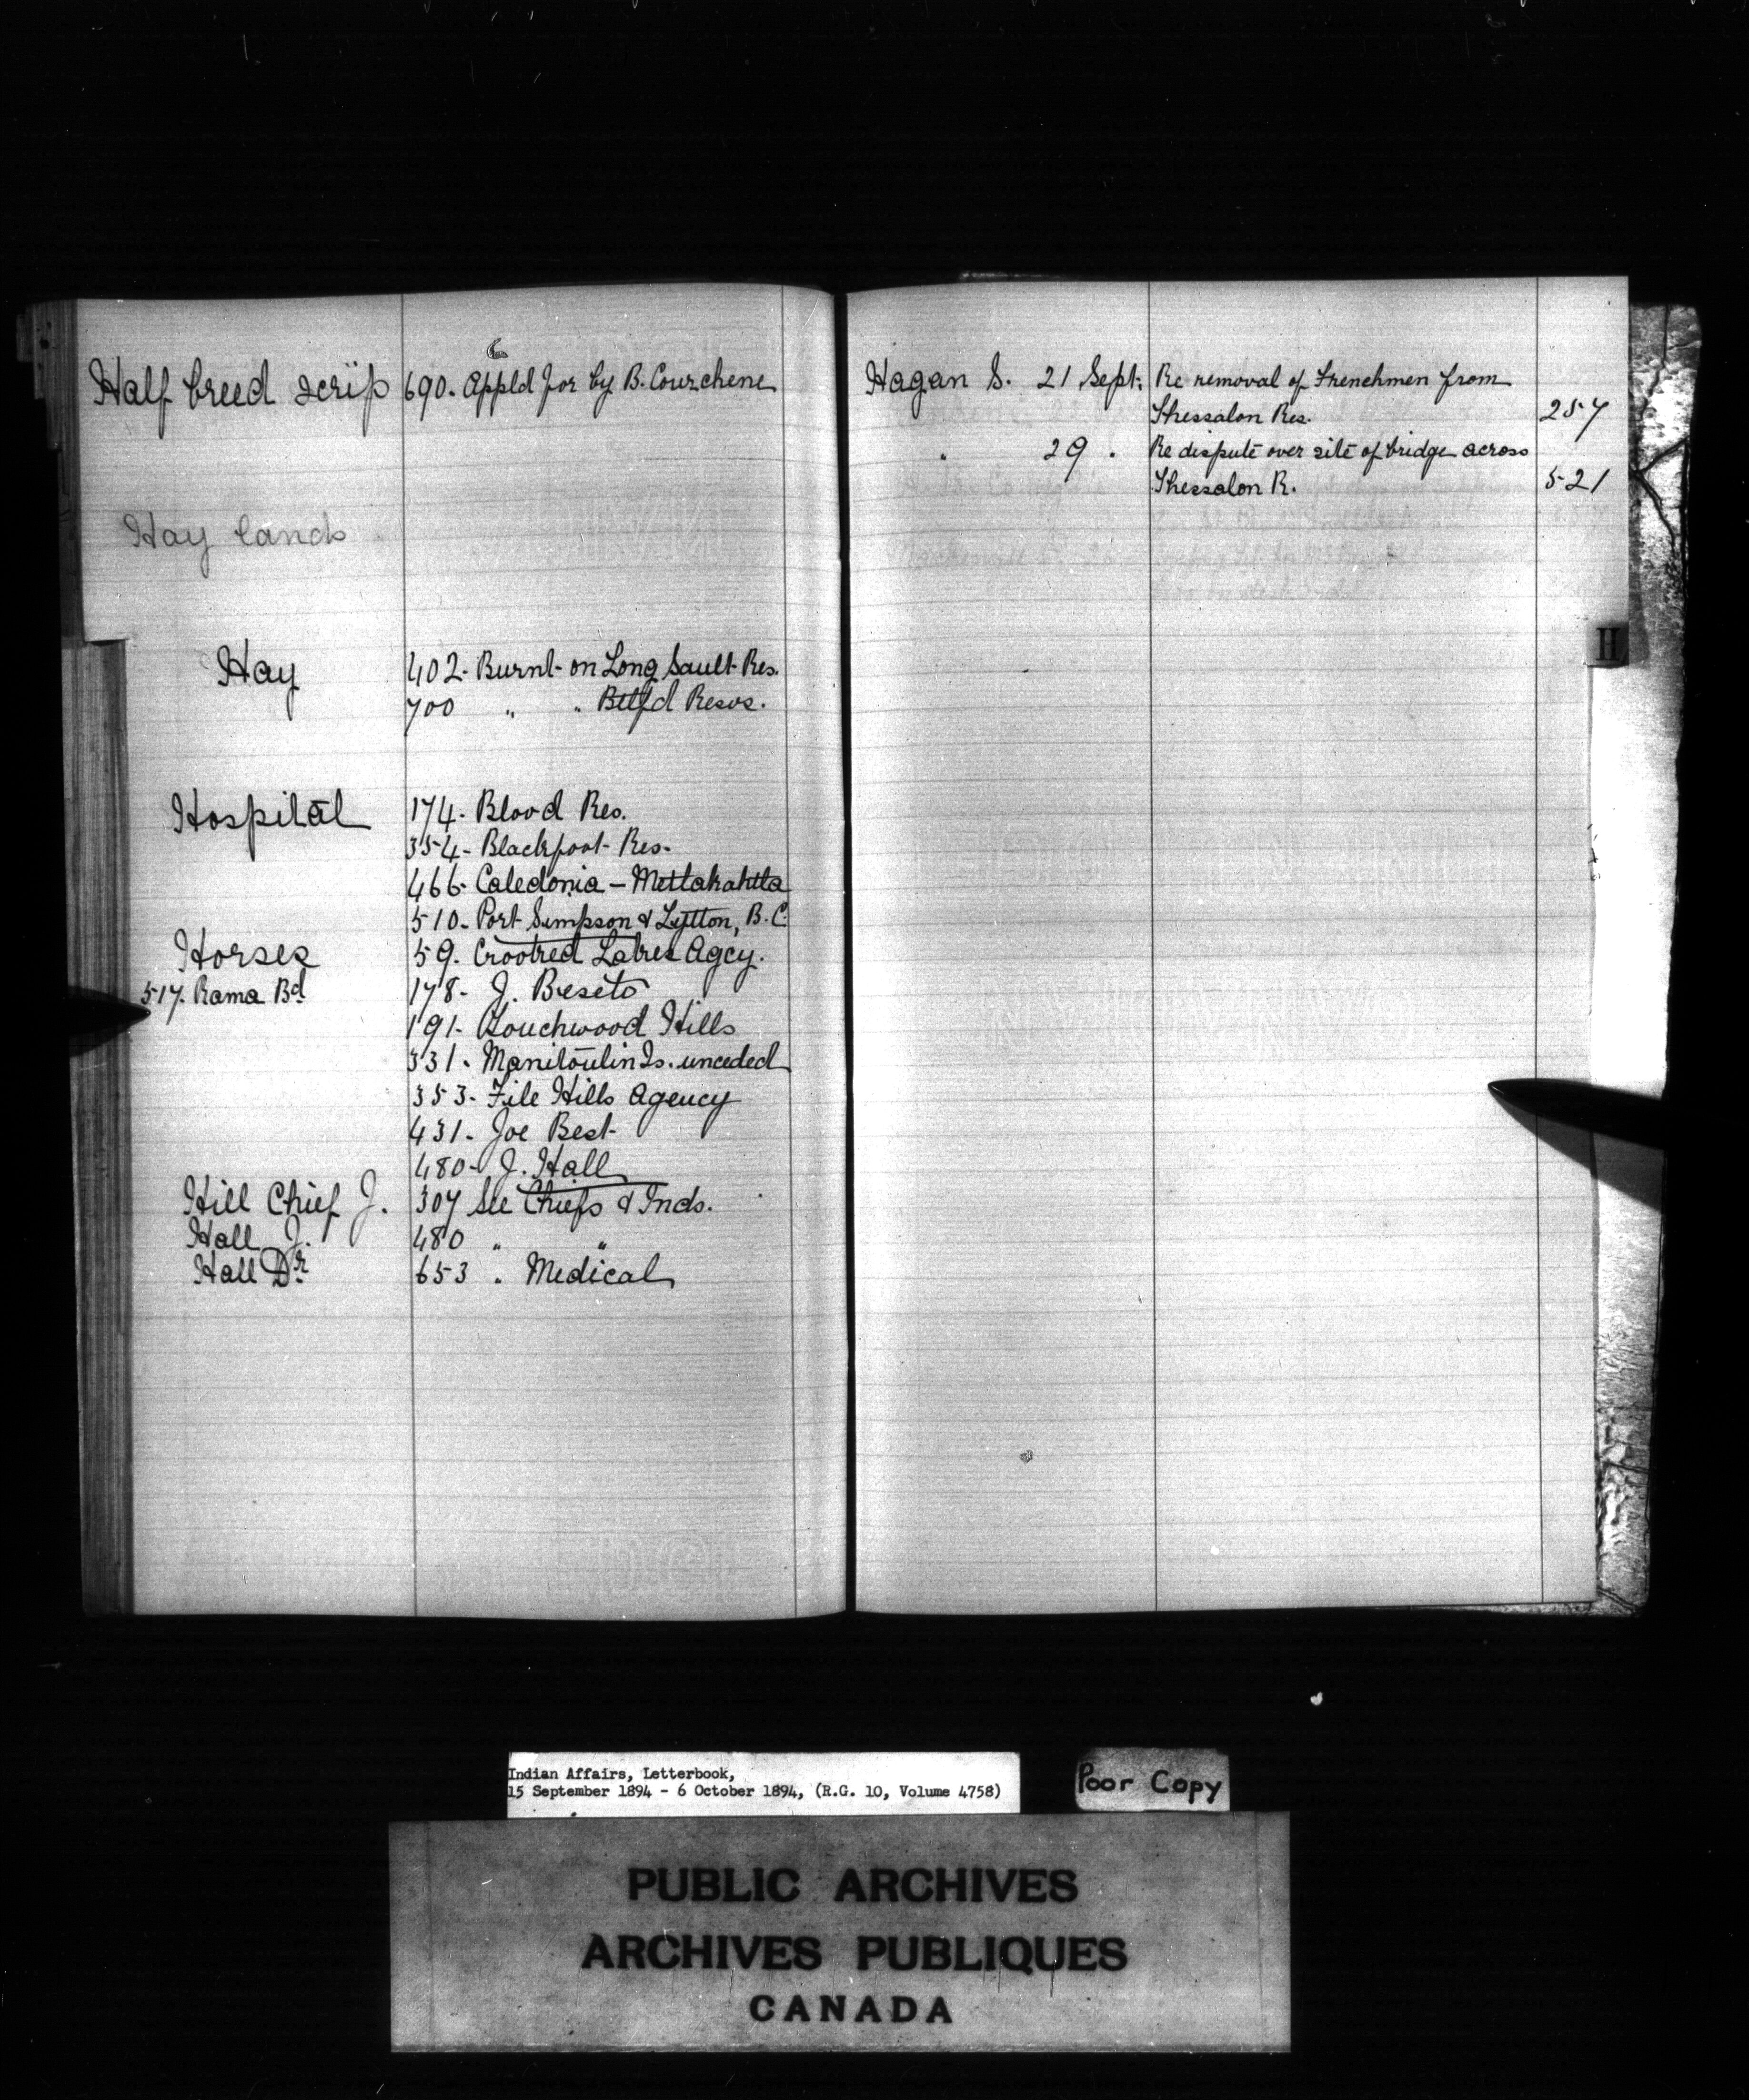 Half breed scrip 690. Appld for by B. Courchene
Hay lands
Hay 402. Burnt on Long Sault Res.
700 " " Battlefd Resvs.
Hospital 174. Blood Res.
354. Blackfoot Res.
466. Caledonia – Metlakahtla
510. Port Simpson & Lytton, B.C.
Horses 59. Crooked Lakes Agcy.
517. Rama Bd. 178. J. Beseto
191. Touchwood Hills
331. Manitoulin Is. unceded
353. File Hills Agency
431. Joe Best
480. J. Hall
Hill Chief J. 307 See Chiefs & Inds.
Hall J. 480 " "
Hall Dr. 653 " Medical
Hagan S. 21 Sept. Re removal of Frenchmen from
Thessalon Res. 257
" 29 " Re dispute over site of bridge across
Thessalon R. 521
H
Indian Affairs, Letterbook,
15 September 1894 - 6 October 1894, (R.G. 10, Volume 4758)
Poor Copy
PUBLIC ARCHIVES
ARCHIVES PUBLIQUES
CANADA